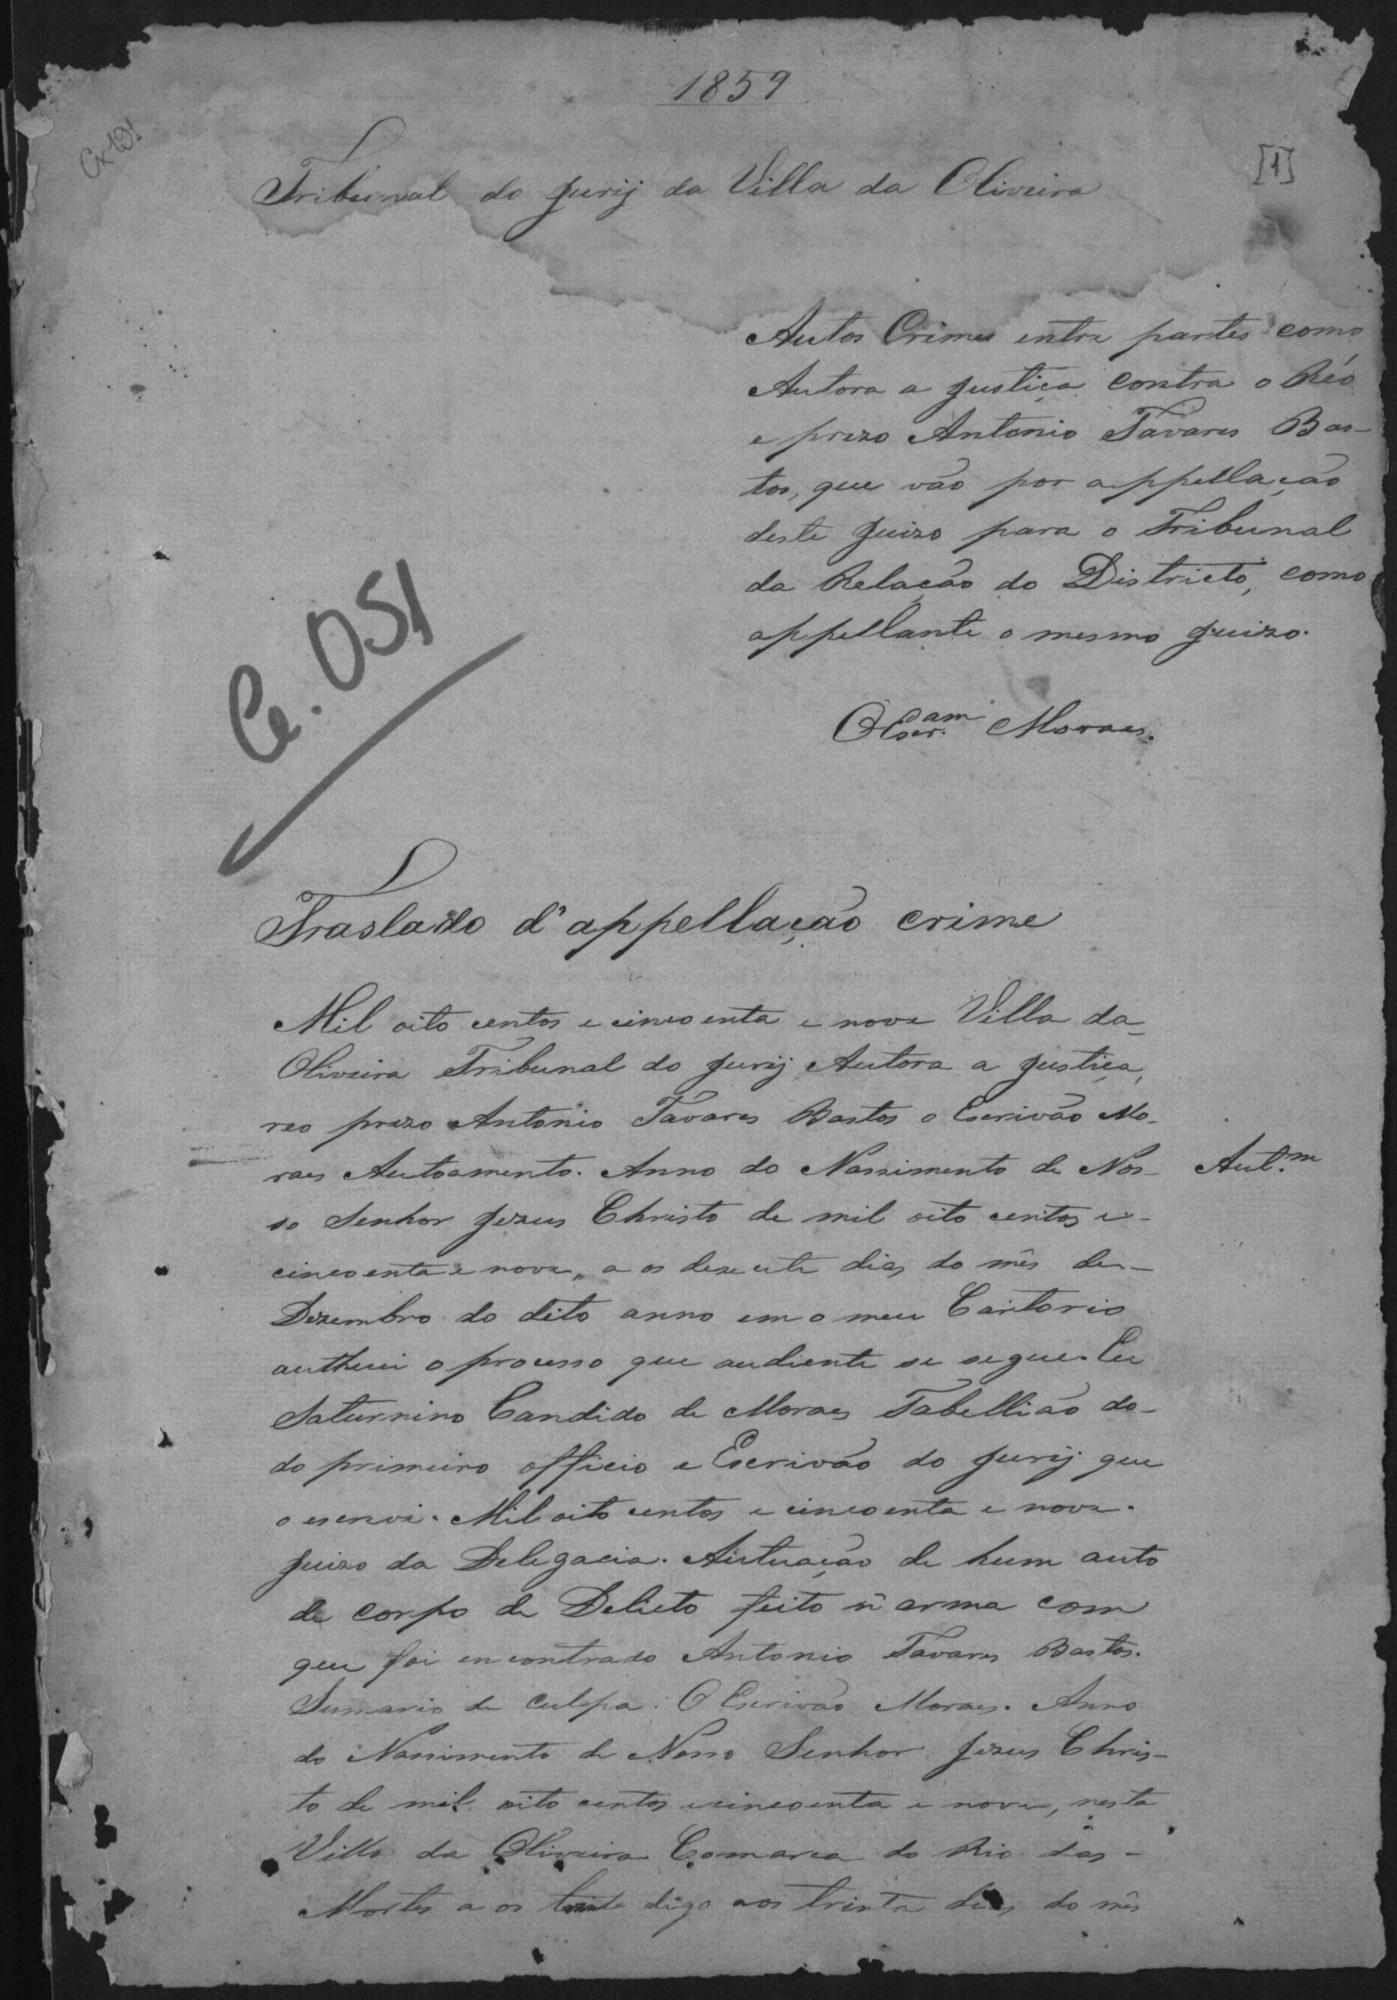 1859
Cx 191
[1]
Tribunal do Jurij da Villa da Oliveira
Autos Crimes entre partes como
Autora a Justiça contra o Réo
e prezo Antonio Tavares Bas-
tos, que vão por appellação
deste Juizo para o Tribunal
da Relação do Districto, como
appellante o mesmo Juizo.
O Escr.am Moraes.
Ce. 051
Traslado d'appellação crime
Mil oito centos e cincoenta e nove Villa da
Oliveira Tribunal do Jurij Autora a Justiça,
reo prezo Antonio Tavares Bastos o Escrivão Mo-
raes Autoamento. Anno do Nassimento de Nos-
so Senhor Jezus Christo de mil oito centos e-
cincoenta e nove, a os dezesete dias do mês de-
Dezembro do dito anno em o meu Cartorio
authuei o processo que audiente se segue. Eu
Saturnino Candido de Moraes Tabellião do-
do primeiro officio e Escrivão do Jurij que
o escrevi. Mil oito centos e cincoenta e nove.
Juizo da Delegacia. Autuação de hum auto
de corpo de Delicto feito n'arma com
que foi encontrado Antonio Tavares Bastos.
Sumario de culpa. O Escrivão Moraes. Anno
do Nassimento de Nosso Senhor Jezus Chris-
to de mil oito centos e cincoenta e nove, nesta
Villa da Oliveira Comarca do Rio das-
Mortes a os digo aos trinta dias do mês
Aut.m